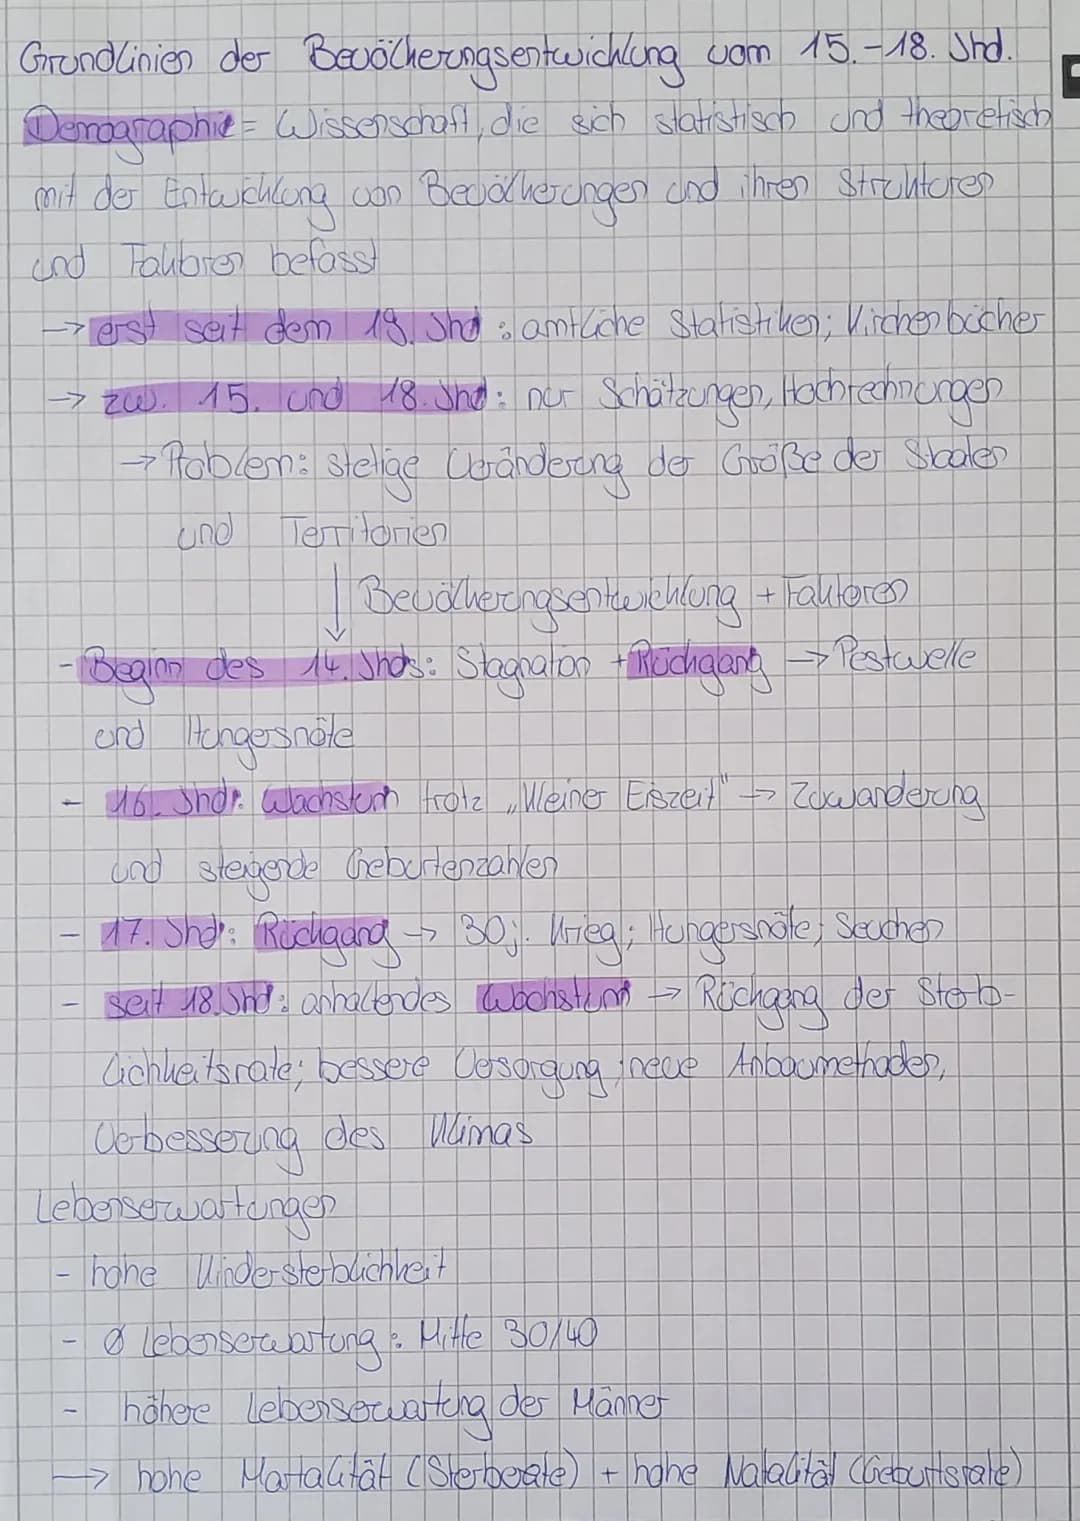 Grundlinien der Bevölkerungsentwicklung vom 15.-18. Jhd.
Demographie = Wissenschaft, die sich statistisch und theoretisch
mit der Entwicklung von Bevölkerungen und ihren Strukturen
und Faktoren befasst
→ erst seit dem 19. Jhd: amtliche Statistiken; Kirchenbücher
→ zw. 15. und 18. Jhd: nur Schätzungen, Hochrechnungen
→ Problem: stetige Veränderung der Größe der Staaten
und Territorien
↓ Bevölkerungsentwicklung + Faktoren
- Beginn des 14. Jhds: Stagnation + Rückgang → Pestwelle
und Hungersnöte
- 16. Jhd: Wachstum trotz „kleiner Eiszeit" → Zuwanderung
und steigende Geburtenzahlen
- 17. Jhd: Rückgang → 30j. Krieg; Hungersnöte; Seuchen
- seit 18. Jhd: anhaltendes Wachstum → Rückgang der Sterb-
lichkeitsrate; bessere Versorgung; neue Anbaumethoden,
Verbesserung des Klimas
Lebenserwartungen
- hohe Kindersterblichkeit
- Ø Lebenserwartung: Mitte 30/40
- höhere Lebenserwartung der Männer
→ hohe Martalität (Sterberate) + hohe Natalität (Geburtsrate)